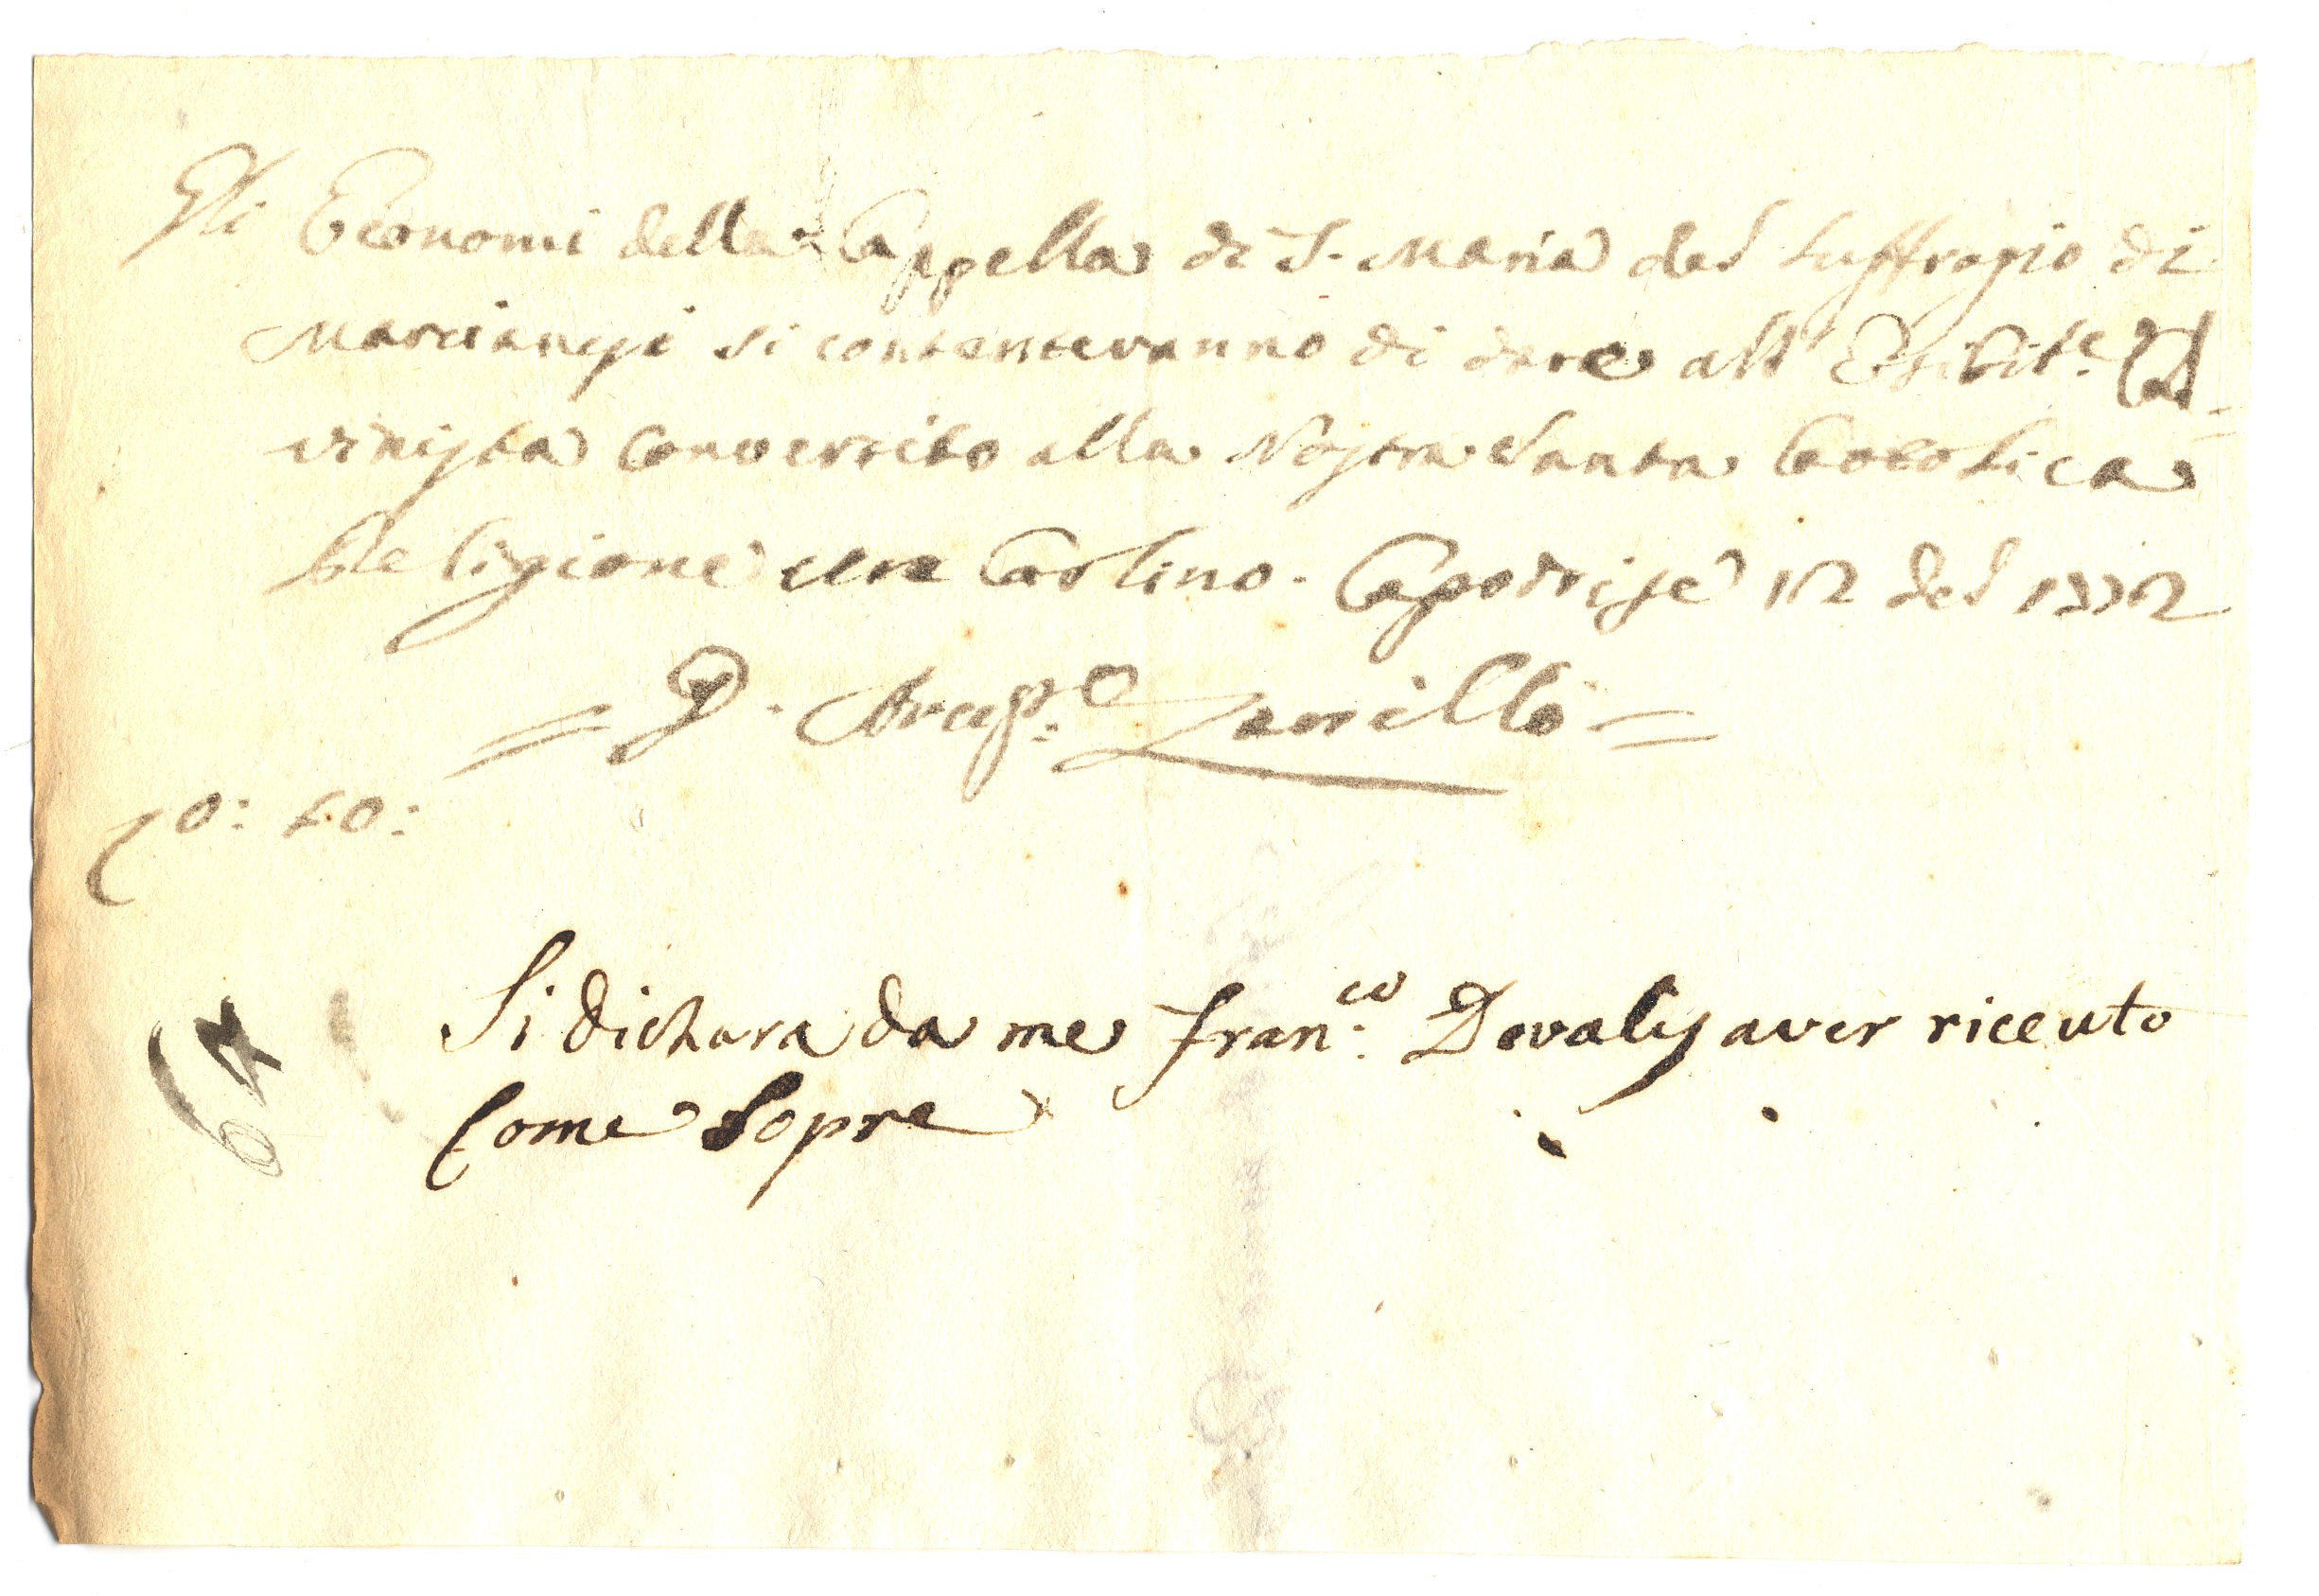 Gli Economi della Cappella di S. Maria del Suffragio di
Marcianesi si contenteranno di dare all' Esibit.e Cal-
vinista Convertito alla Nostra Santa Catolica
Religione un Carlino. Capodrise 12 del 1772
= D. Arcip.e Zarrillo =
0: 10:
Si dichara da me Fran.co Devalis aver riceuto
Come sopre